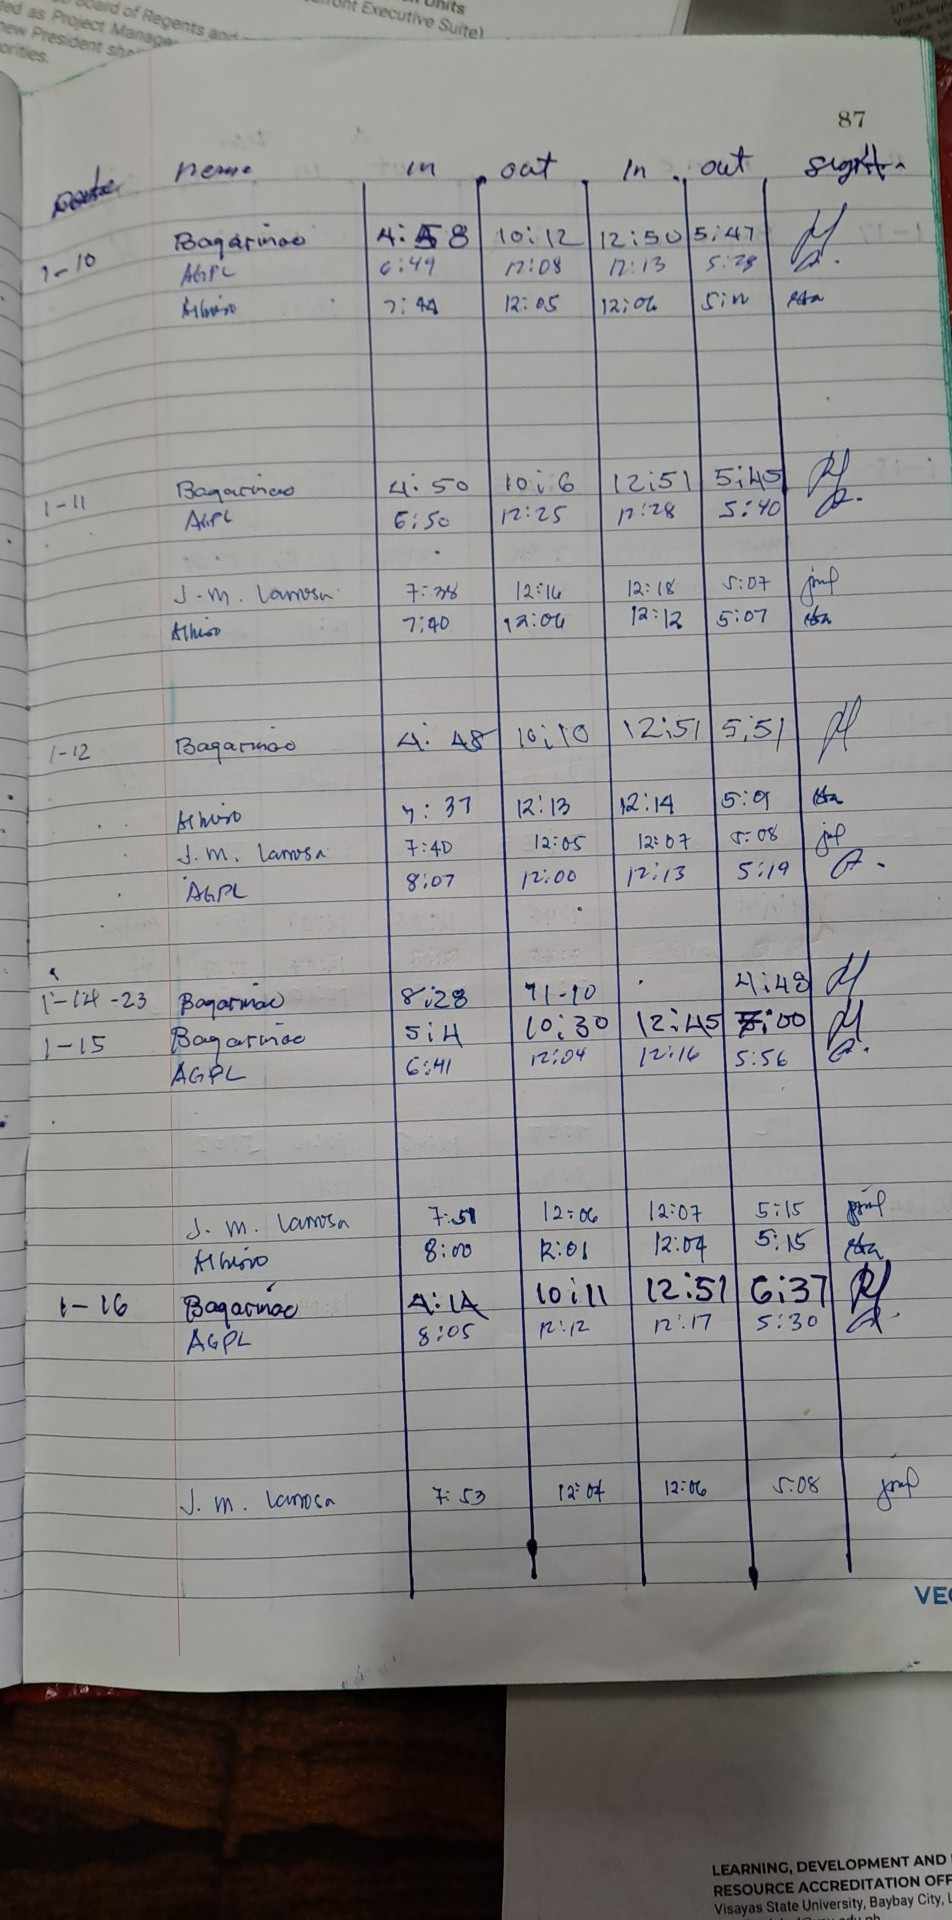 Units
Board of Regents and
ont Executive Suite)
ed as Project Manage
new President sha
orities.
87
Date name in out In out
1-10 Bagarinao 4:58 10:12 12:50 5:47
AGPL 6:49 12:08 12:13 5:28
7:44 12:05 12:06
1-11 Bagarinao 4:50 10:6 12:51 5:45
AGPL 6:50 12:25 12:28 5:40
J.M. Larrosa 7:38 12:16 12:18 5:07
7:40 12:06 12:12 5:07
1-12 Bagarinao 4:48 10:10 12:51 5:51
7:37 12:13 12:14 5:09
J.M. Larrosa 7:40 12:05 12:07 5:08
AGPL 8:07 12:00 12:13 5:19
1-14-23 Bagarinao 8:28 11-10 4:48
1-15 Bagarinao 5:4 10:30 12:45 :00
AGPL 6:41 12:04 12:16 5:56
J.M. Larrosa 7:51 12:06 12:07 5:15
8:00 12:01 12:04 5:15
1-16 Bagarinao 4:14 10:11 12:51 6:37
AGPL 8:05 12:12 12:17 5:30
J.M. Larrosa 7:53 12:04 12:06 5:08
VEC
LEARNING, DEVELOPMENT AND
RESOURCE ACCREDITATION OFF
Visayas State University, Baybay City, L